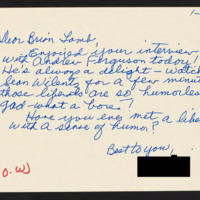 1-
Dear Brian Lamb,
Enjoyed your interview
with Andrew Ferguson today!
He's always a delight - Watch
Sean Wilentz for a few minut
those liberals are so humorles
god - what a bore!
Have you ever met a libe
with a sense of humor?
Best to you,
O.W)